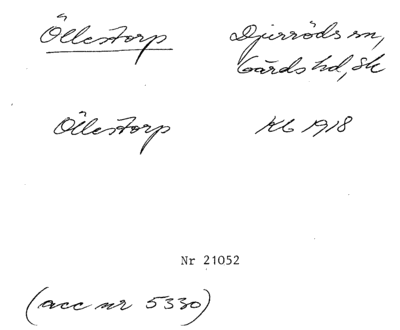 Öllestorp Djurröds sn,
Gärds hd, Sk
Öllestorp Kb 1918
Nr 21052
(acc nr 5330)